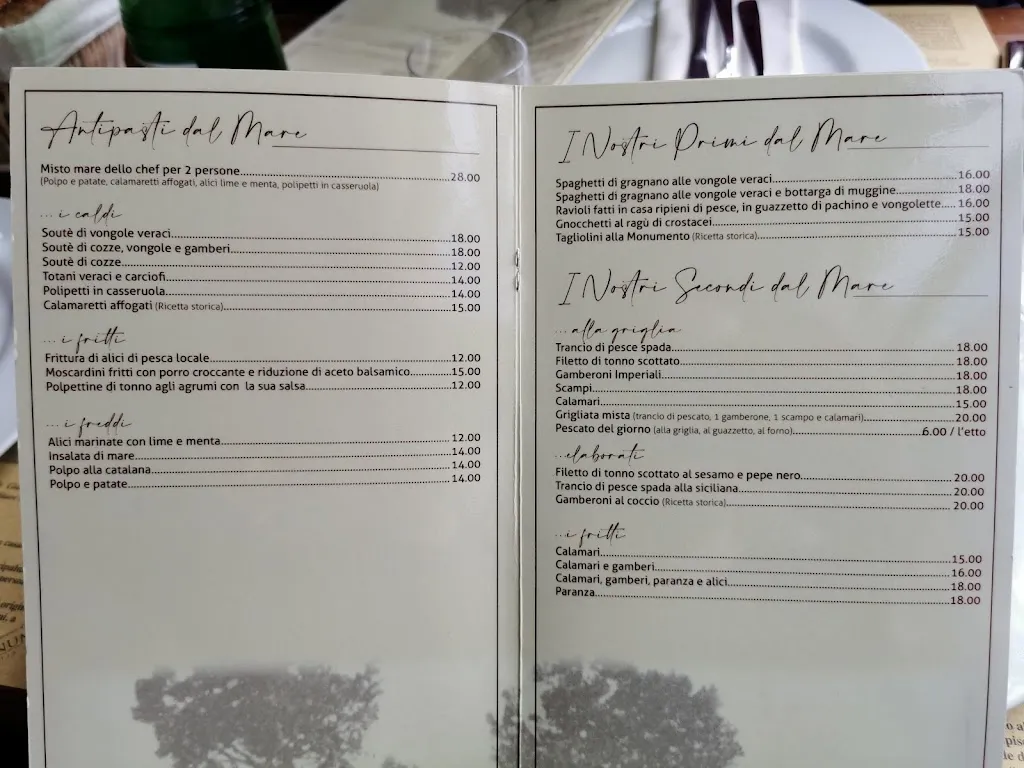 Antipasti dal Mare
Misto mare dello chef per 2 persone 28.00
(Polpo e patate, calamaretti affogati, alici lime e menta, polipetti in casseruola)
... i caldi
Soutè di vongole veraci 18.00
Soutè di cozze, vongole e gamberi 18.00
Soutè di cozze 12.00
Totani veraci e carciofi 14.00
Polipetti in casseruola 14.00
Calamaretti affogati (Ricetta storica) 15.00
... i fritti
Frittura di alici di pesca locale 12.00
Moscardini fritti con porro croccante e riduzione di aceto balsamico 15.00
Polpettine di tonno agli agrumi con la sua salsa 12.00
... i freddi
Alici marinate con lime e menta 12.00
Insalata di mare 14.00
Polpo alla catalana 14.00
Polpo e patate 14.00
I Nostri Primi dal Mare
Spaghetti di gragnano alle vongole veraci 16.00
Spaghetti di gragnano alle vongole veraci e bottarga di muggine 18.00
Ravioli fatti in casa ripieni di pesce, in guazzetto di pachino e vongolette 16.00
Gnocchetti al ragù di crostacei 15.00
Tagliolini alla Monumento (Ricetta storica) 15.00
I Nostri Secondi dal Mare
... alla griglia
Trancio di pesce spada 18.00
Filetto di tonno scottato 18.00
Gamberoni Imperiali 18.00
Scampi 18.00
Calamari 15.00
Grigliata mista (trancio di pescato, 1 gamberone, 1 scampo e calamari) 20.00
Pescato del giorno (alla griglia, al guazzetto, al forno) 6.00 / l'etto
... elaborati
Filetto di tonno scottato al sesamo e pepe nero 20.00
Trancio di pesce spada alla siciliana 20.00
Gamberoni al coccio (Ricetta storica) 20.00
... i fritti
Calamari 15.00
Calamari e gamberi 16.00
Calamari, gamberi, paranza e alici 18.00
Paranza 18.00